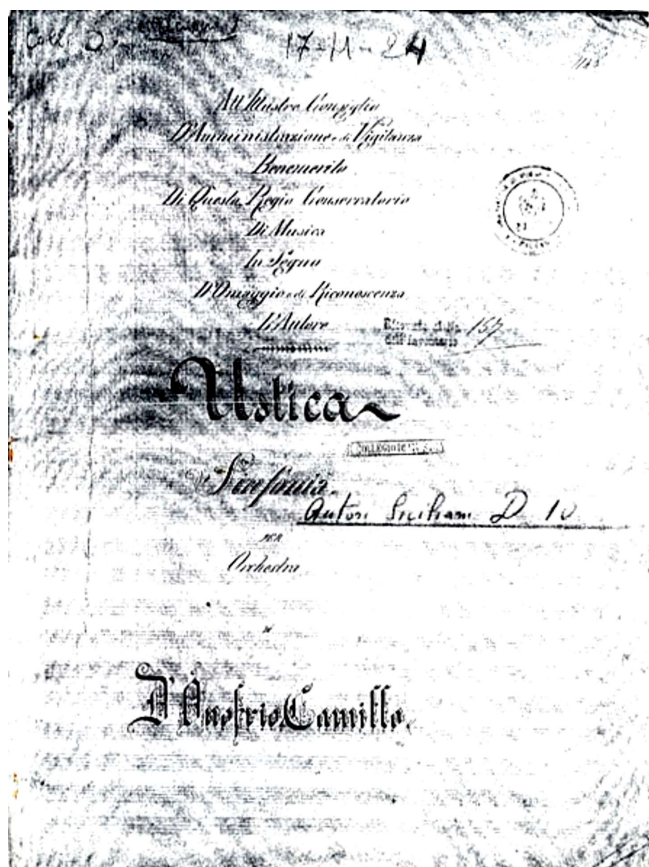 17-11-24
All'Illustre Consiglio
D'Amministrazione e di Vigilanza
Benemerito
Di Questo Regio Conservatorio
Di Musica
In Segno
D'Omaggio e di Riconoscenza
L'Autore
157
dell'inventario
Ustica
COLLEGIO DI
Sinfonia
Autori Siciliani D 10
PER
Orchestra
DI
D'Onofrio Camillo.